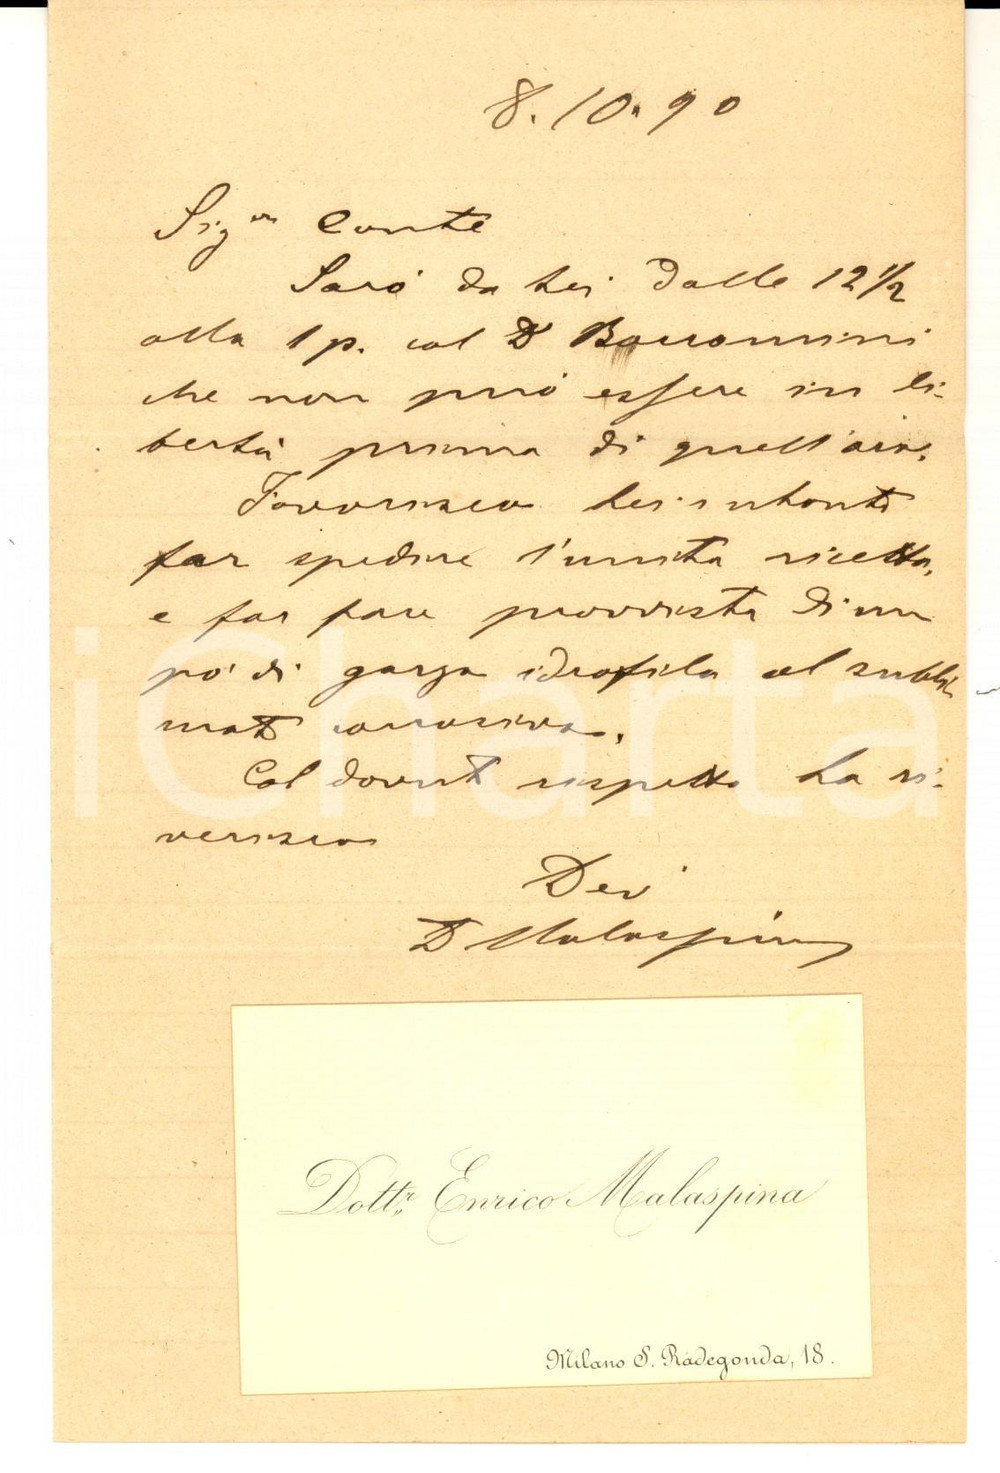 8.10.90
Sig.or Conte
Sarò da Lei dalle 12 1/2
alla 1 p. col Dr Borromini
che non può essere in li-
bertà prima di quell'ora.
Favorisca Lei intanto
far spedire l'unita ricetta,
e far fare provvista di un
po' di garza idrofila al subbli
mato corrosivo.
Col dovuto rispetto La ri-
verisco
Dev
Dr Malaspina
Dott.r Enrico Malaspina
Milano S. Radegonda, 18.
iCharta